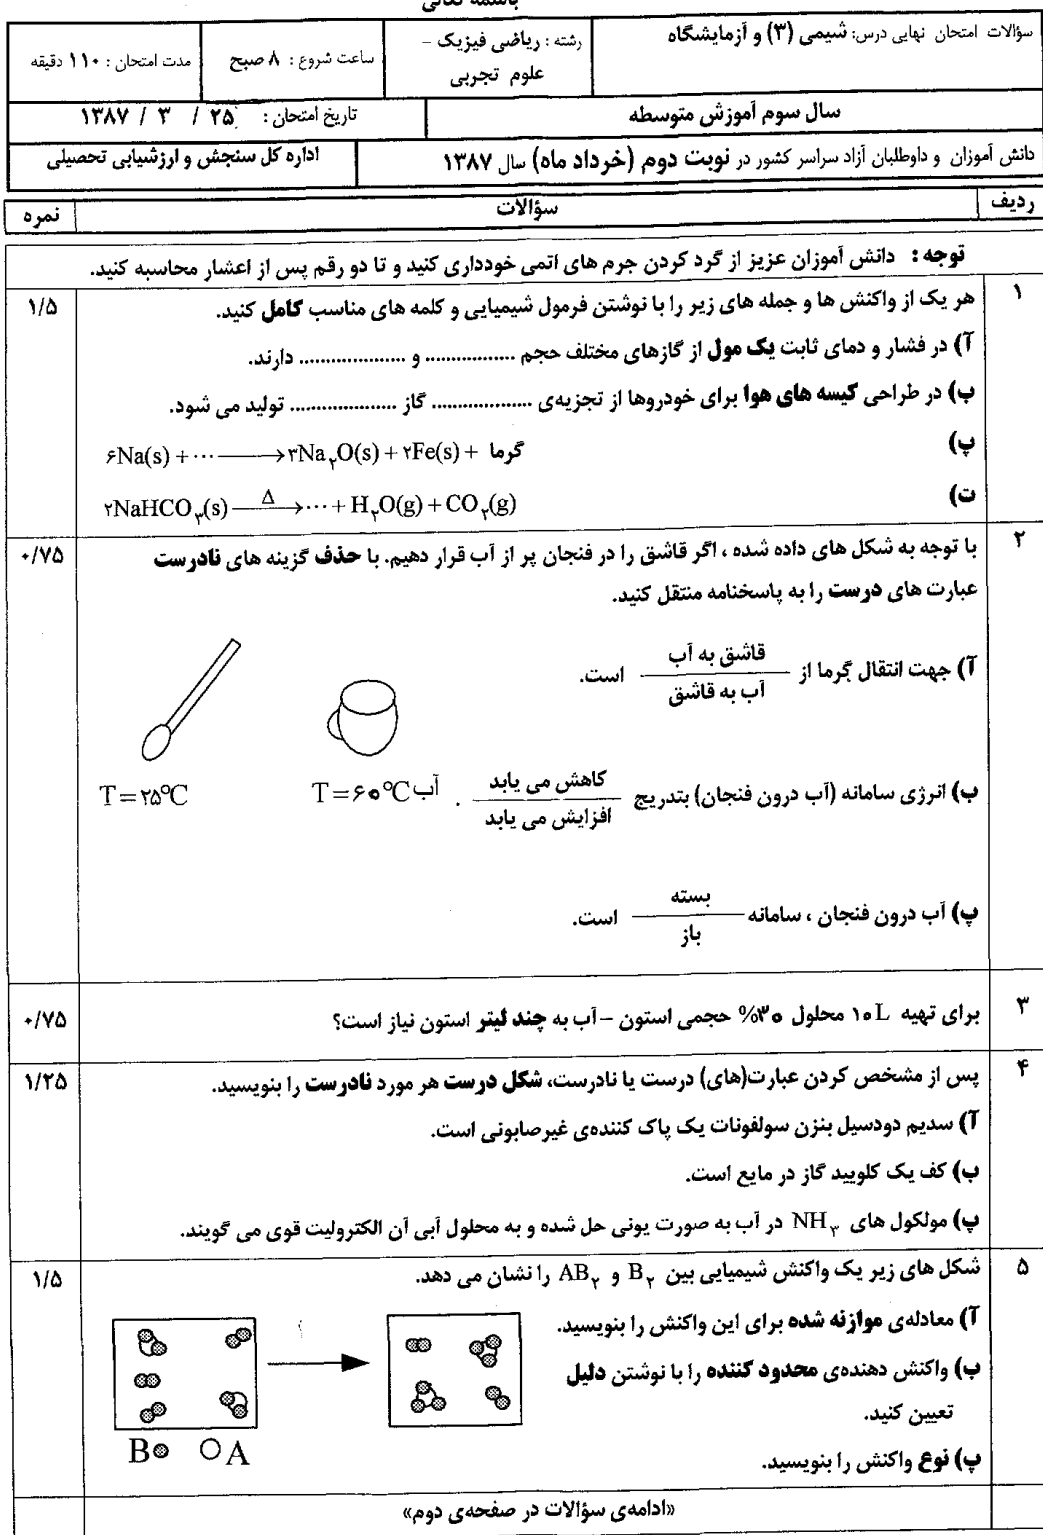 باسمه تعالی
سؤالات امتحان نهایی درس: شیمی (۳) و آزمایشگاه
رشته : ریاضی فیزیک –
علوم تجربی
ساعت شروع : ۸ صبح
مدت امتحان : ۱۱۰ دقیقه
سال سوم آموزش متوسطه
تاریخ امتحان : ۲۵ / ۳ / ۱۳۸۷
دانش آموزان و داوطلبان آزاد سراسر کشور در نوبت دوم (خرداد ماه) سال ۱۳۸۷
اداره کل سنجش و ارزشیابی تحصیلی
ردیف سؤالات نمره
توجه : دانش آموزان عزیز از گرد کردن جرم های اتمی خودداری کنید و تا دو رقم پس از اعشار محاسبه کنید.
۱ هر یک از واکنش ها و جمله های زیر را با نوشتن فرمول شیمیایی و کلمه های مناسب کامل کنید. ۱/۵
آ) در فشار و دمای ثابت یک مول از گازهای مختلف حجم ................. و .................... دارند.
ب) در طراحی کیسه های هوا برای خودروها از تجزیه‌ی ................... گاز .................... تولید می شود.
پ) ۶Na(s) + ··· ⟶ ۳Na₂O(s) + ۲Fe(s) + گرما
ت) ۲NaHCO₃(s) —Δ→ ··· + H₂O(g) + CO₂(g)
۲ با توجه به شکل های داده شده ، اگر قاشق را در فنجان پر از آب قرار دهیم. با حذف گزینه های نادرست ۰/۷۵
عبارت های درست را به پاسخنامه منتقل کنید.
آ) جهت انتقال گرما از قاشق به آب / آب به قاشق است.
T=۲۵°C
آب T=۶۰°C
ب) انرژی سامانه (آب درون فنجان) بتدریج کاهش می یابد / افزایش می یابد .
پ) آب درون فنجان ، سامانه بسته / باز است.
۳ برای تهیه ۱۰L محلول ۳۰% حجمی استون –آب به چند لیتر استون نیاز است؟ ۰/۷۵
۴ پس از مشخص کردن عبارت(های) درست یا نادرست، شکل درست هر مورد نادرست را بنویسید. ۱/۲۵
آ) سدیم دودسیل بنزن سولفونات یک پاک کننده‌ی غیرصابونی است.
ب) کف یک کلویید گاز در مایع است.
پ) مولکول های NH₃ در آب به صورت یونی حل شده و به محلول آبی آن الکترولیت قوی می گویند.
۵ شکل های زیر یک واکنش شیمیایی بین B₂ و AB₂ را نشان می دهد. ۱/۵
آ) معادله‌ی موازنه شده برای این واکنش را بنویسید.
ب) واکنش دهنده‌ی محدود کننده را با نوشتن دلیل
تعیین کنید.
B A
پ) نوع واکنش را بنویسید.
«ادامه‌ی سؤالات در صفحه‌ی دوم»